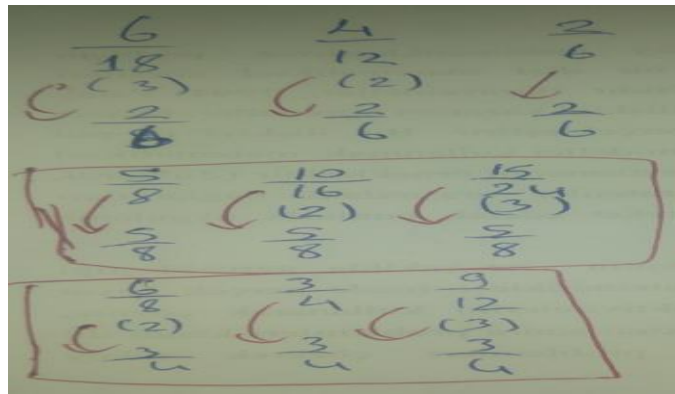 6/18 4/12 2/6
(3) (2)
2/6 2/6 2/6
5/8 10/16 15/24
(2) (3)
5/8 5/8 5/8
6/8 3/4 9/12
(2) (3)
3/4 3/4 3/4